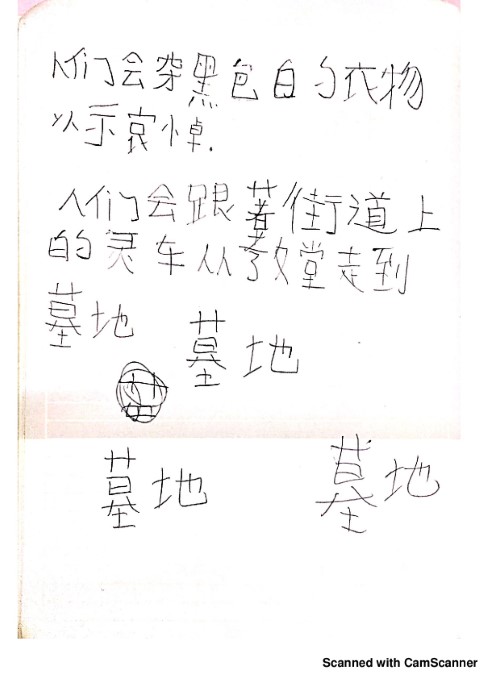 人们会穿黑色白的衣物
以示哀悼.
人们会跟著街道上
的灵车从教堂走到
墓地 墓地
墓地 墓地
Scanned with CamScanner